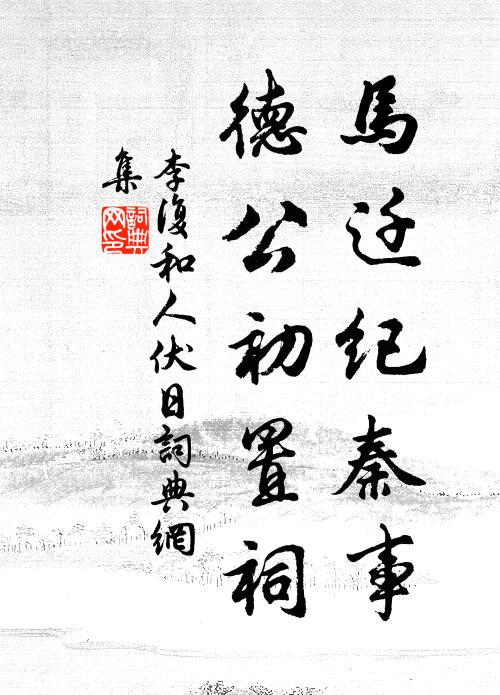 馬迁紀秦事
德公初置祠
李復和人伏日詞典網
集
詞典
网印